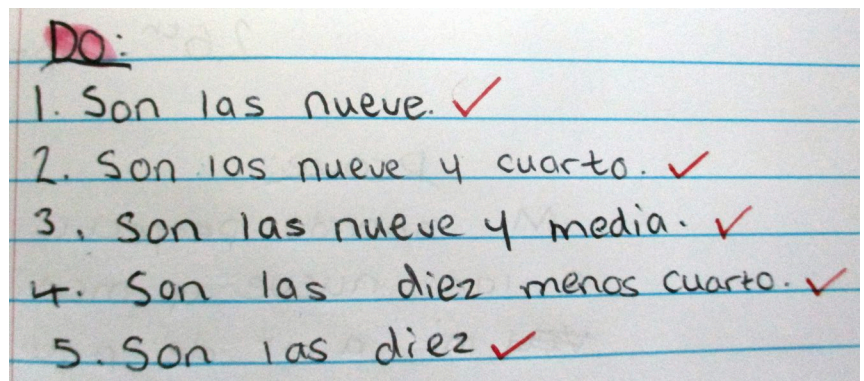 Do:
1. Son las nueve.
2. Son las nueve y cuarto.
3. Son las nueve y media.
4. Son las diez menos cuarto.
5. Son las diez